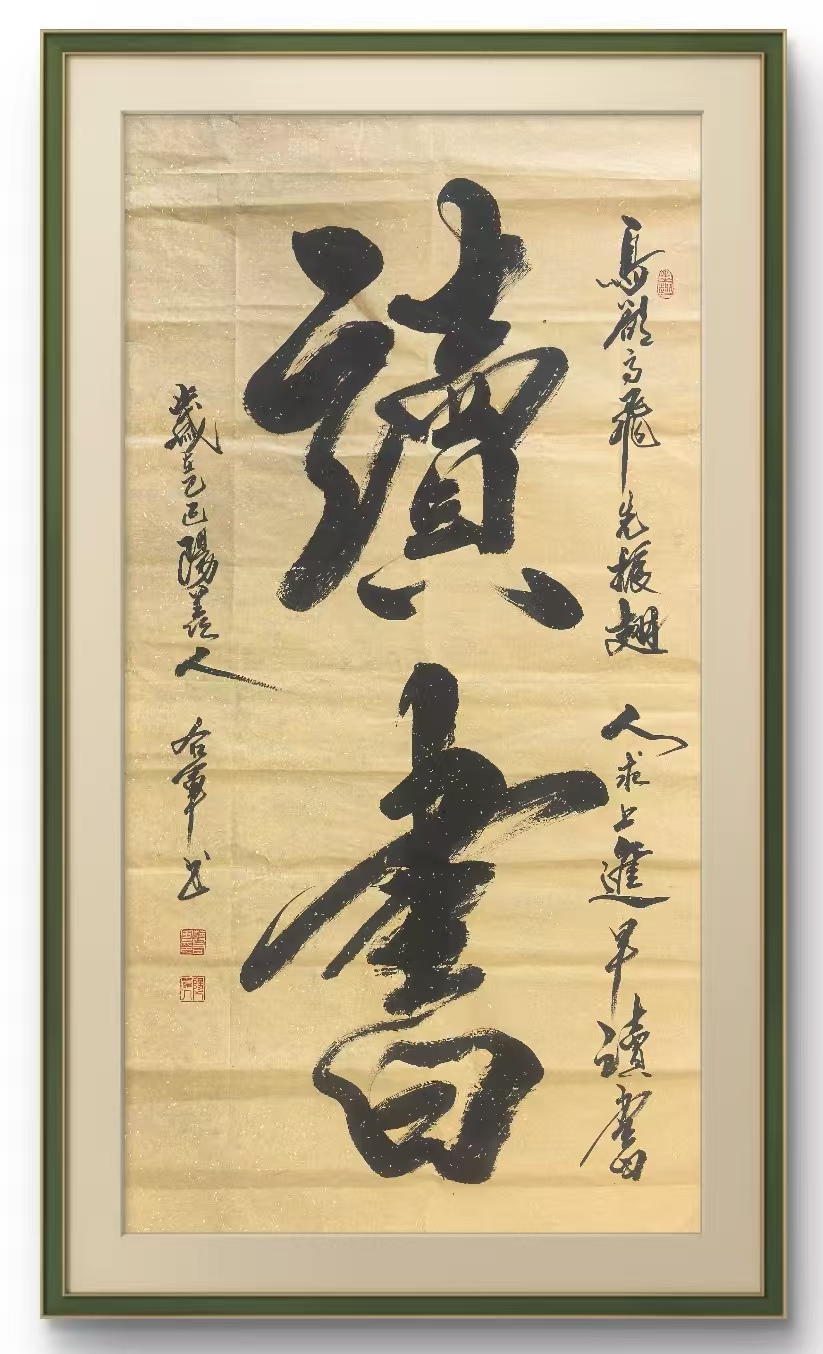 鳥欲高飛先振翅 人求上進早讀書
讀書
歲在乙巳陽羨人 軍书